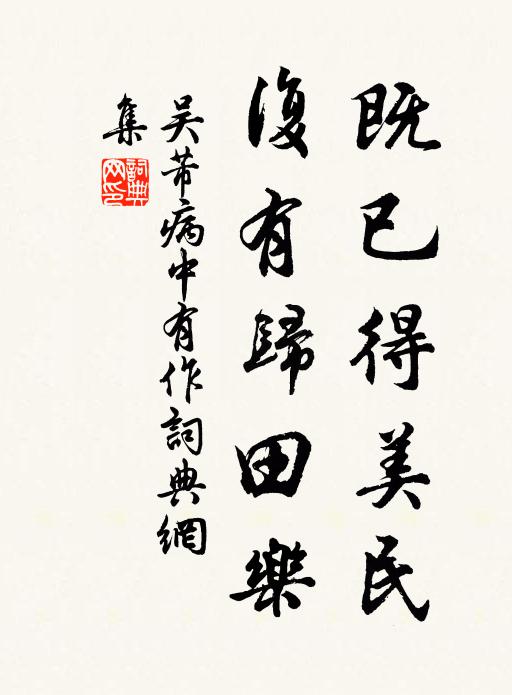 既已得美民
復有歸田樂
吴芾病中有作詞典網
集
詞典網印